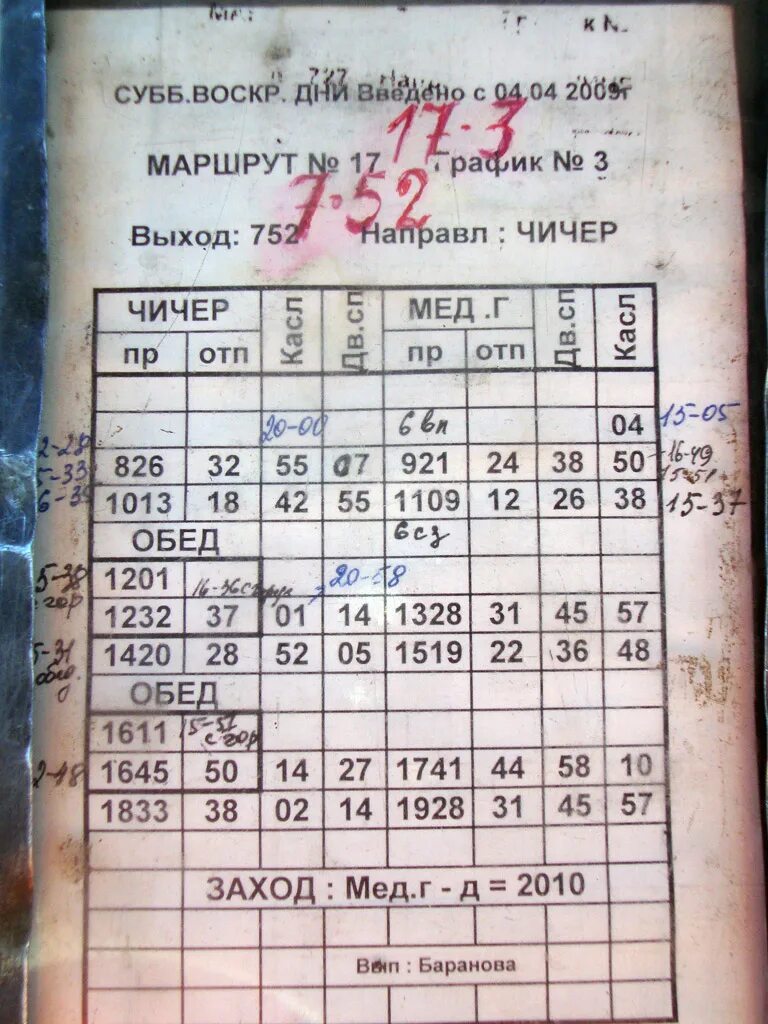 СУББ.ВОСКР. ДНИ Введено с 04.04 2009г
17-3
МАРШРУТ № 17 График № 3
7-52
Выход: 752 Направл : ЧИЧЕР
ЧИЧЕР Касл Дв.сп МЕД .Г Дв.сп Касл
пр отп пр отп
20-00 6 вп 04 15-05
826 32 55 07 921 24 38 50 16-49
1013 18 42 55 1109 12 26 38 15-37
ОБЕД 6 сз
1201 20-58
1232 37 01 14 1328 31 45 57
1420 28 52 05 1519 22 36 48
ОБЕД
1611 15-51 с гор
1645 50 14 27 1741 44 58 10
1833 38 02 14 1928 31 45 57
ЗАХОД : Мед.г - д = 2010
Вып : Баранова